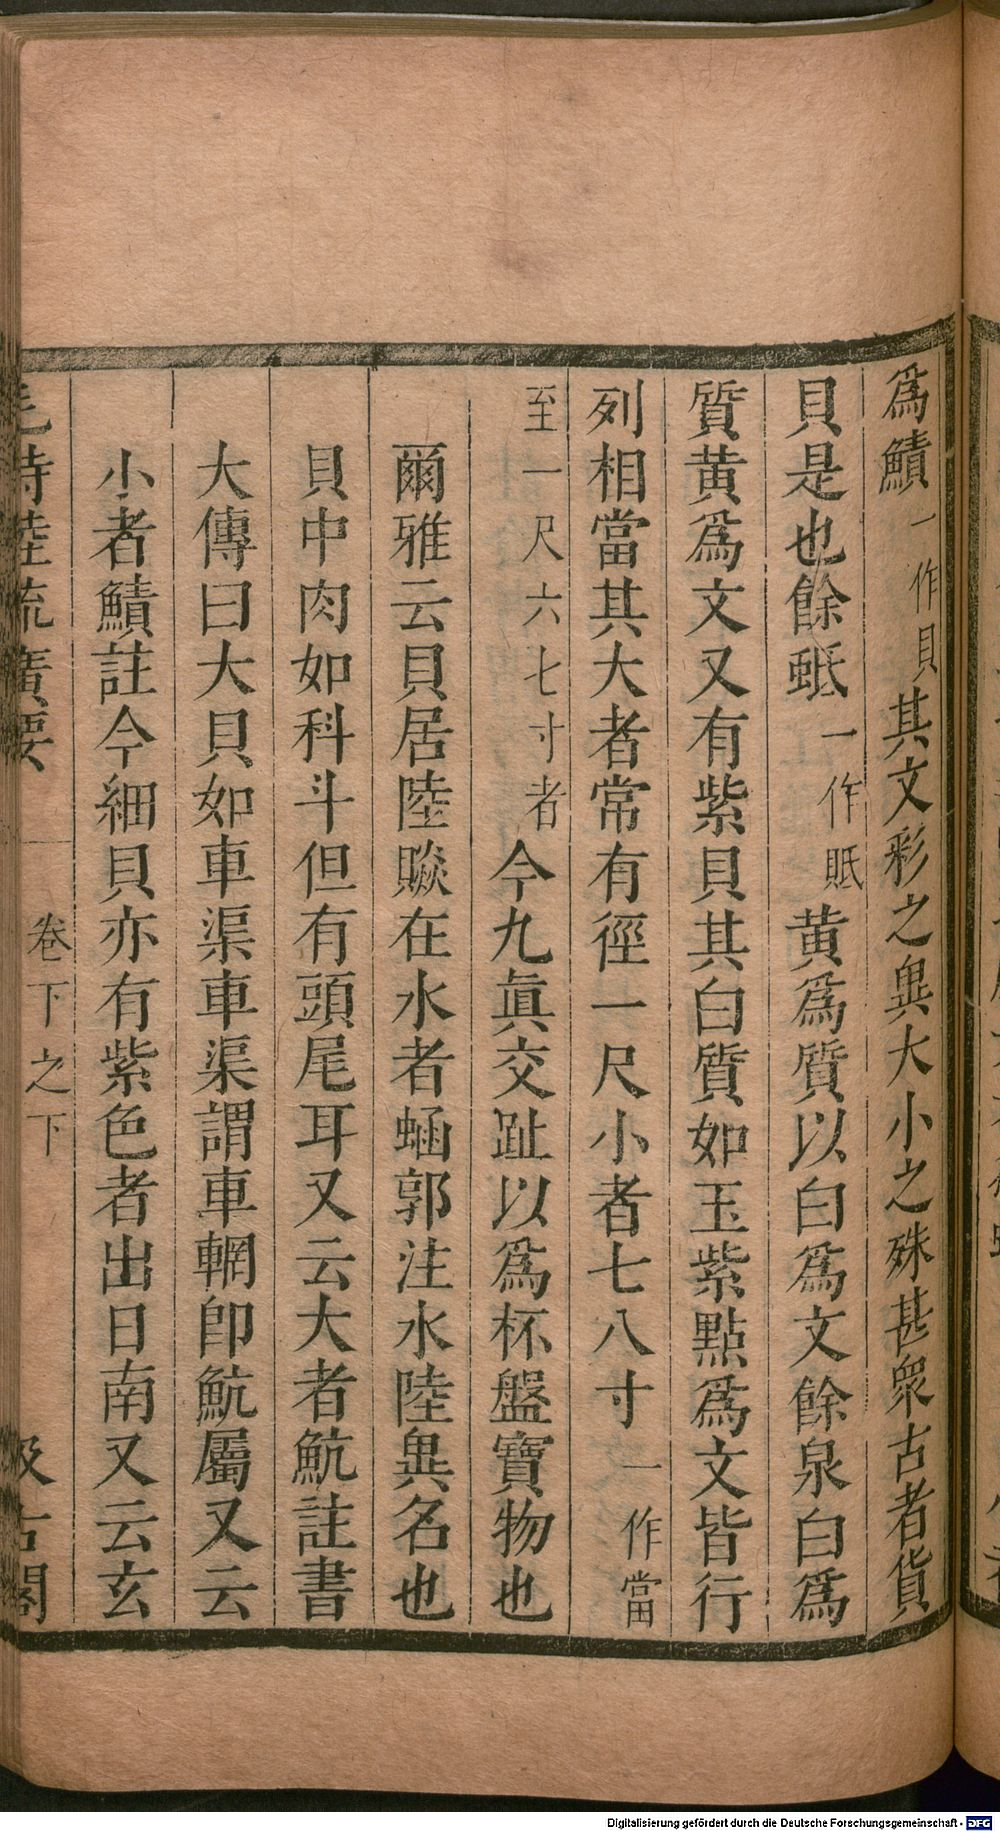 爲鰿一作貝其文彩之異大小之殊甚衆古者貨
貝是也餘蚳一作貾黄爲質以白爲文餘泉白爲
質黄爲文又有紫貝其白質如玉紫點爲文皆行
列相當其大者常有徑一尺小者七八寸一作當
至一尺六七寸者今九眞交趾以爲杯盤寶物也
爾雅云貝居陸贆在水者蜬郭注水陸異名也
貝中肉如科斗但有頭尾耳又云大者魧註書
大傳曰大貝如車渠車渠謂車輞卽魧屬又云
小者鰿註今細貝亦有紫色者出日南又云玄
毛詩陸疏廣要 卷下之下 汲古閣
Digitalisierung gefördert durch die Deutsche Forschungsgemeinschaft - DFG